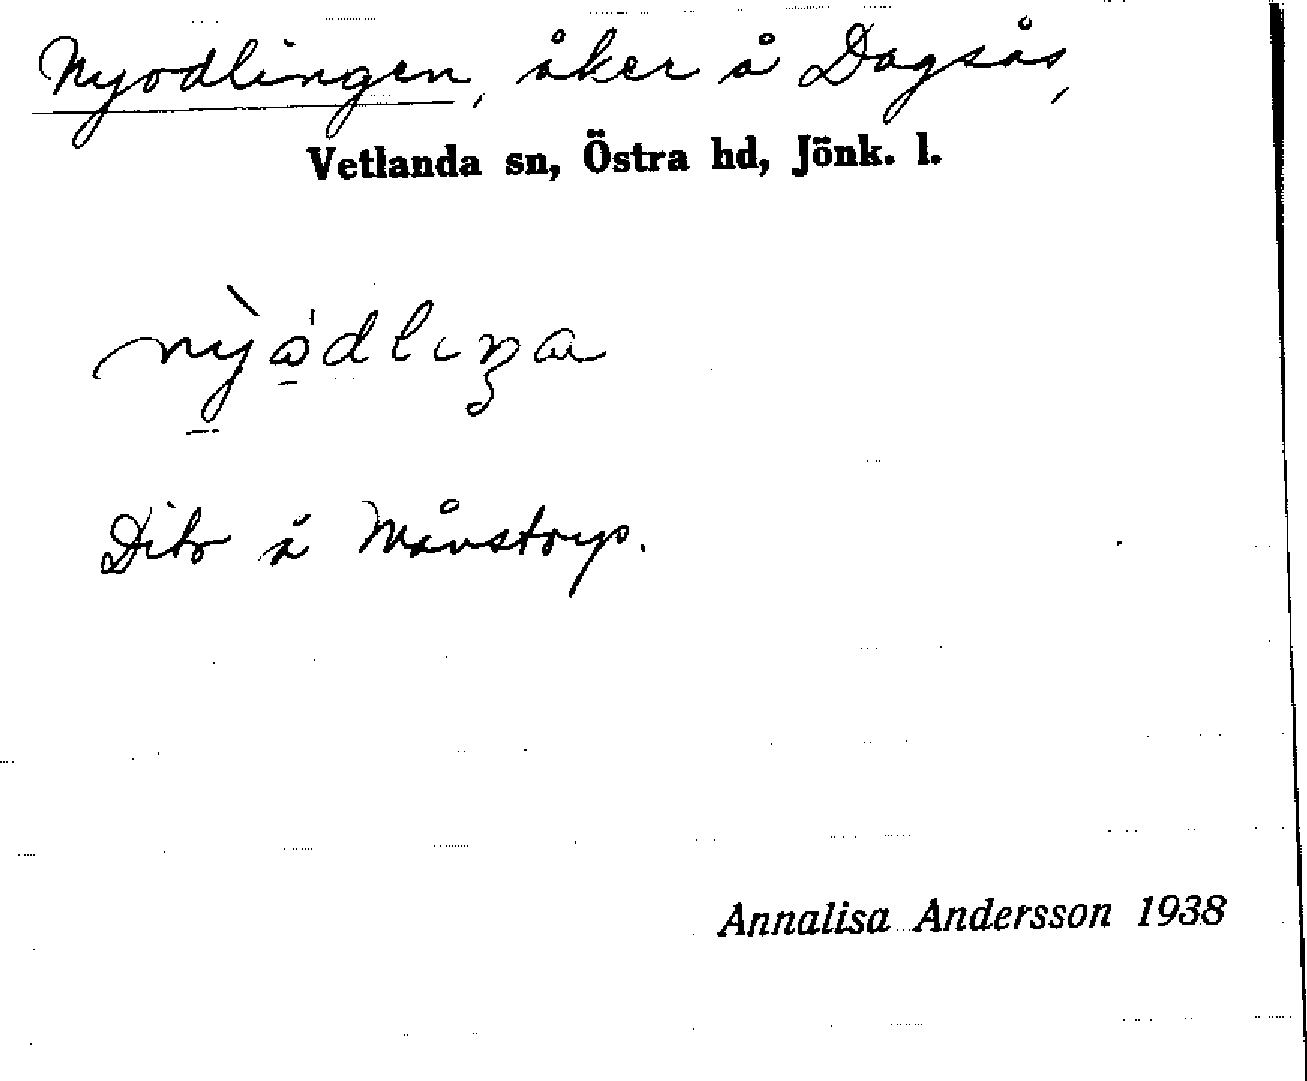 Nyodlingen, åker å Dagsås,
Vetlanda sn, Östra hd, Jönk. l.
Dito å Månstorp.
Annalisa Andersson 1938